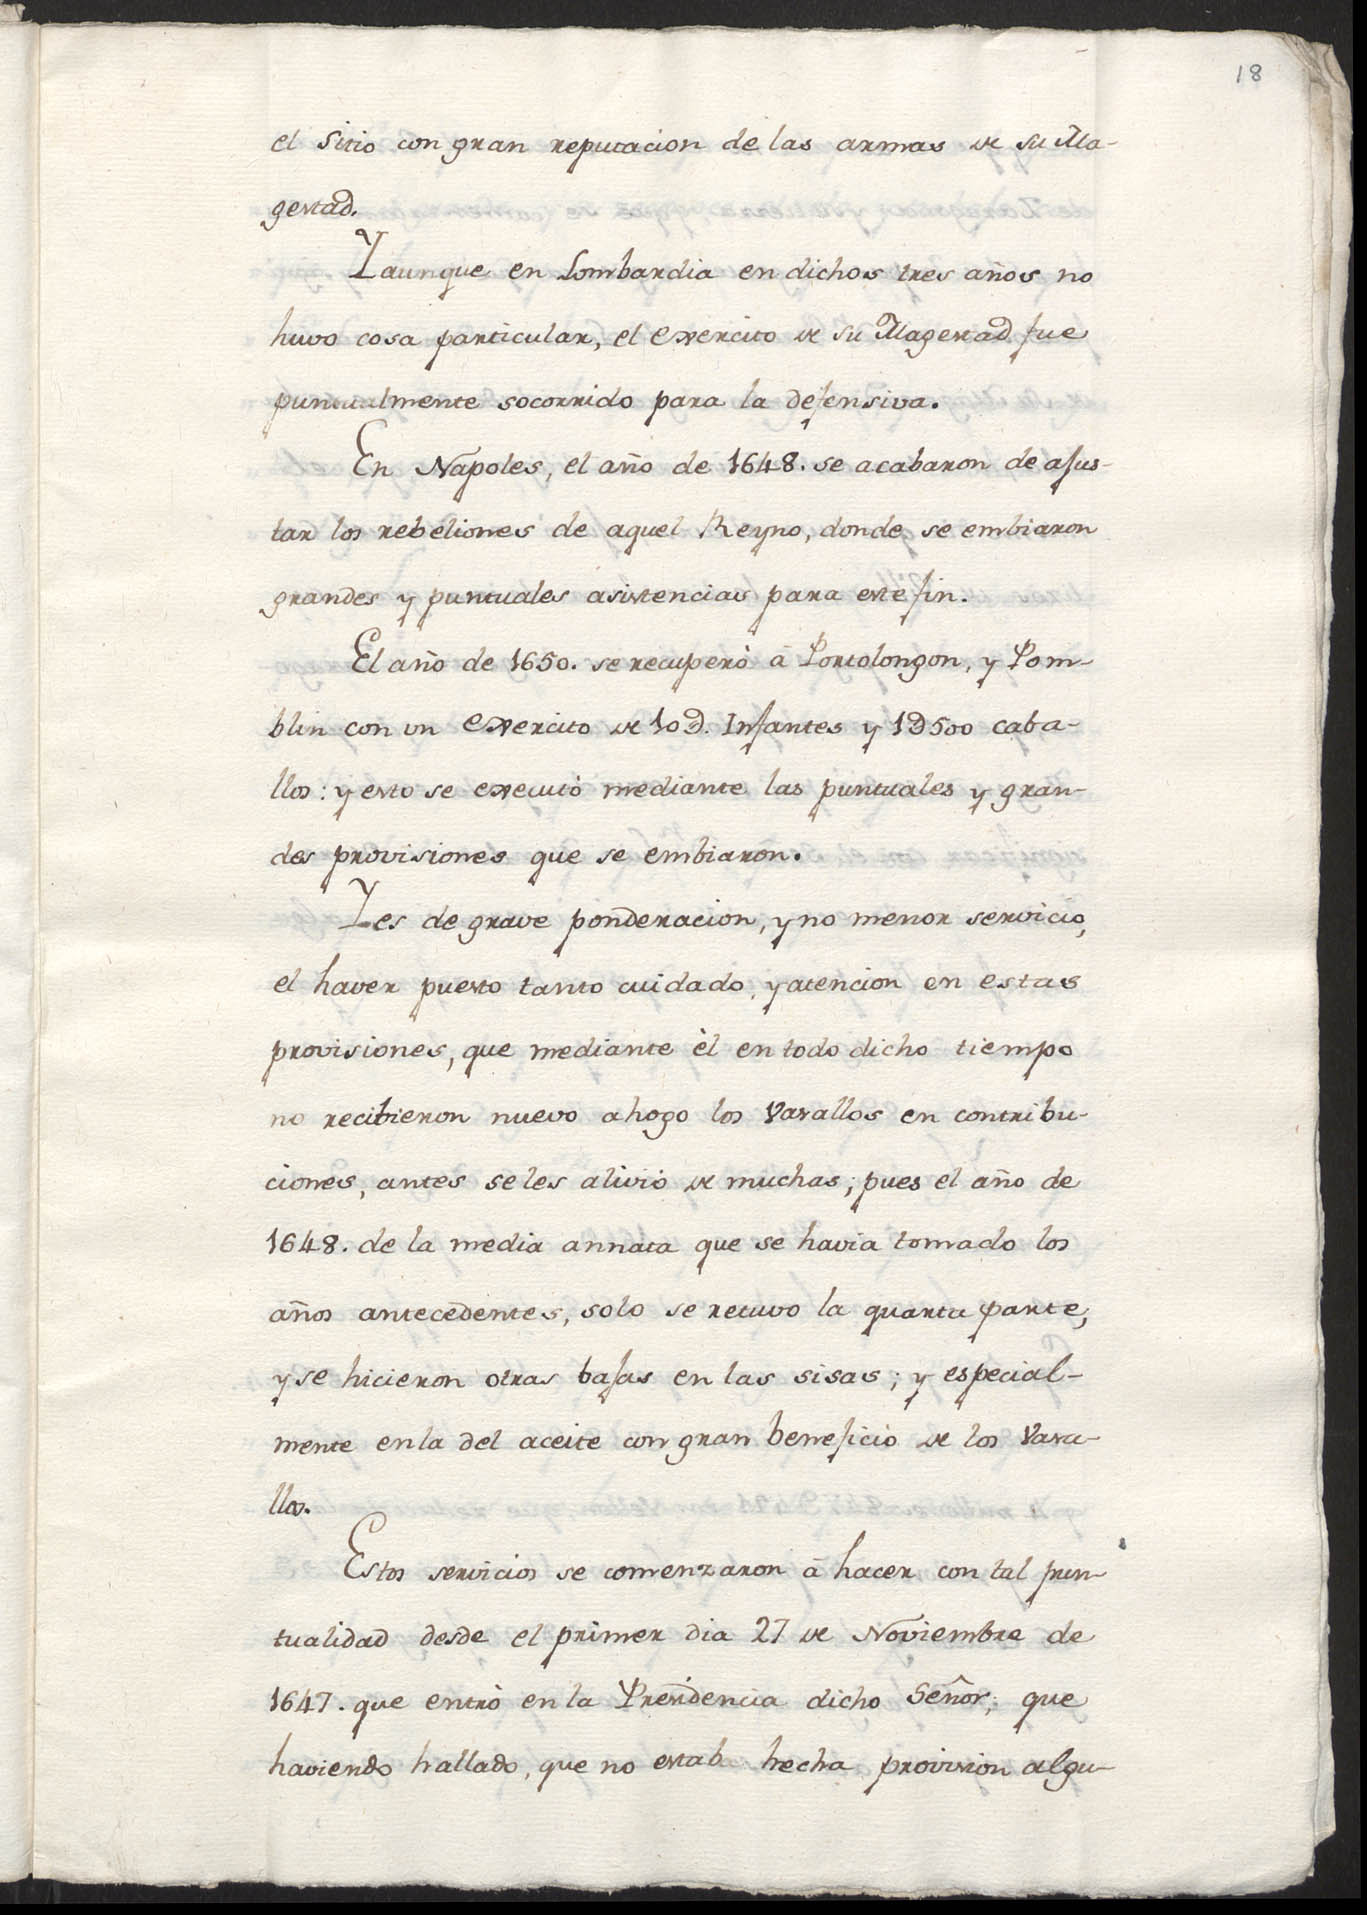 18
el sitio con gran reputacion de las armas de su Ma-
gestad.
Y aunque en Lombardia en dichos tres años no
huvo cosa particular, el exercito de su Magestad fue
puntualmente socorrido para la defensiva.
En Napoles, el año de 1648. se acabaron de ajus-
tar los rebeliones de aquel Reyno, donde se embiaron
grandes y puntuales asistencias para este fin.
El año de 1650. se recuperò à Portolongon, y Pom-
blin con un exercito de 10d. Infantes y 1d500 caba-
llos: y esto se executò mediante las puntuales y gran-
des provisiones que se embiaron.
Y es de grave ponderacion, y no menor servicio,
el haver puesto tanto cuidado, y atencion en estas
provisiones, que mediante èl en todo dicho tiempo
no recibieron nuevo ahogo los Vasallos en contribu-
ciones, antes se les aliviò de muchas; pues el año de
1648. de la media annata que se havia tomado los
años antecedentes, solo se retuvo la quarta parte,
y se hicieron otras bajas en las sisas; y especial-
mente en la del aceite con gran beneficio de los Vasa-
llos.
Estos servicios se comenzaron à hacer con tal pun-
tualidad desde el primer dia 27 de Noviembre de
1647. que entrò en la Presidencia dicho Señor; que
haviendo hallado, que no estab hecha provision algu-